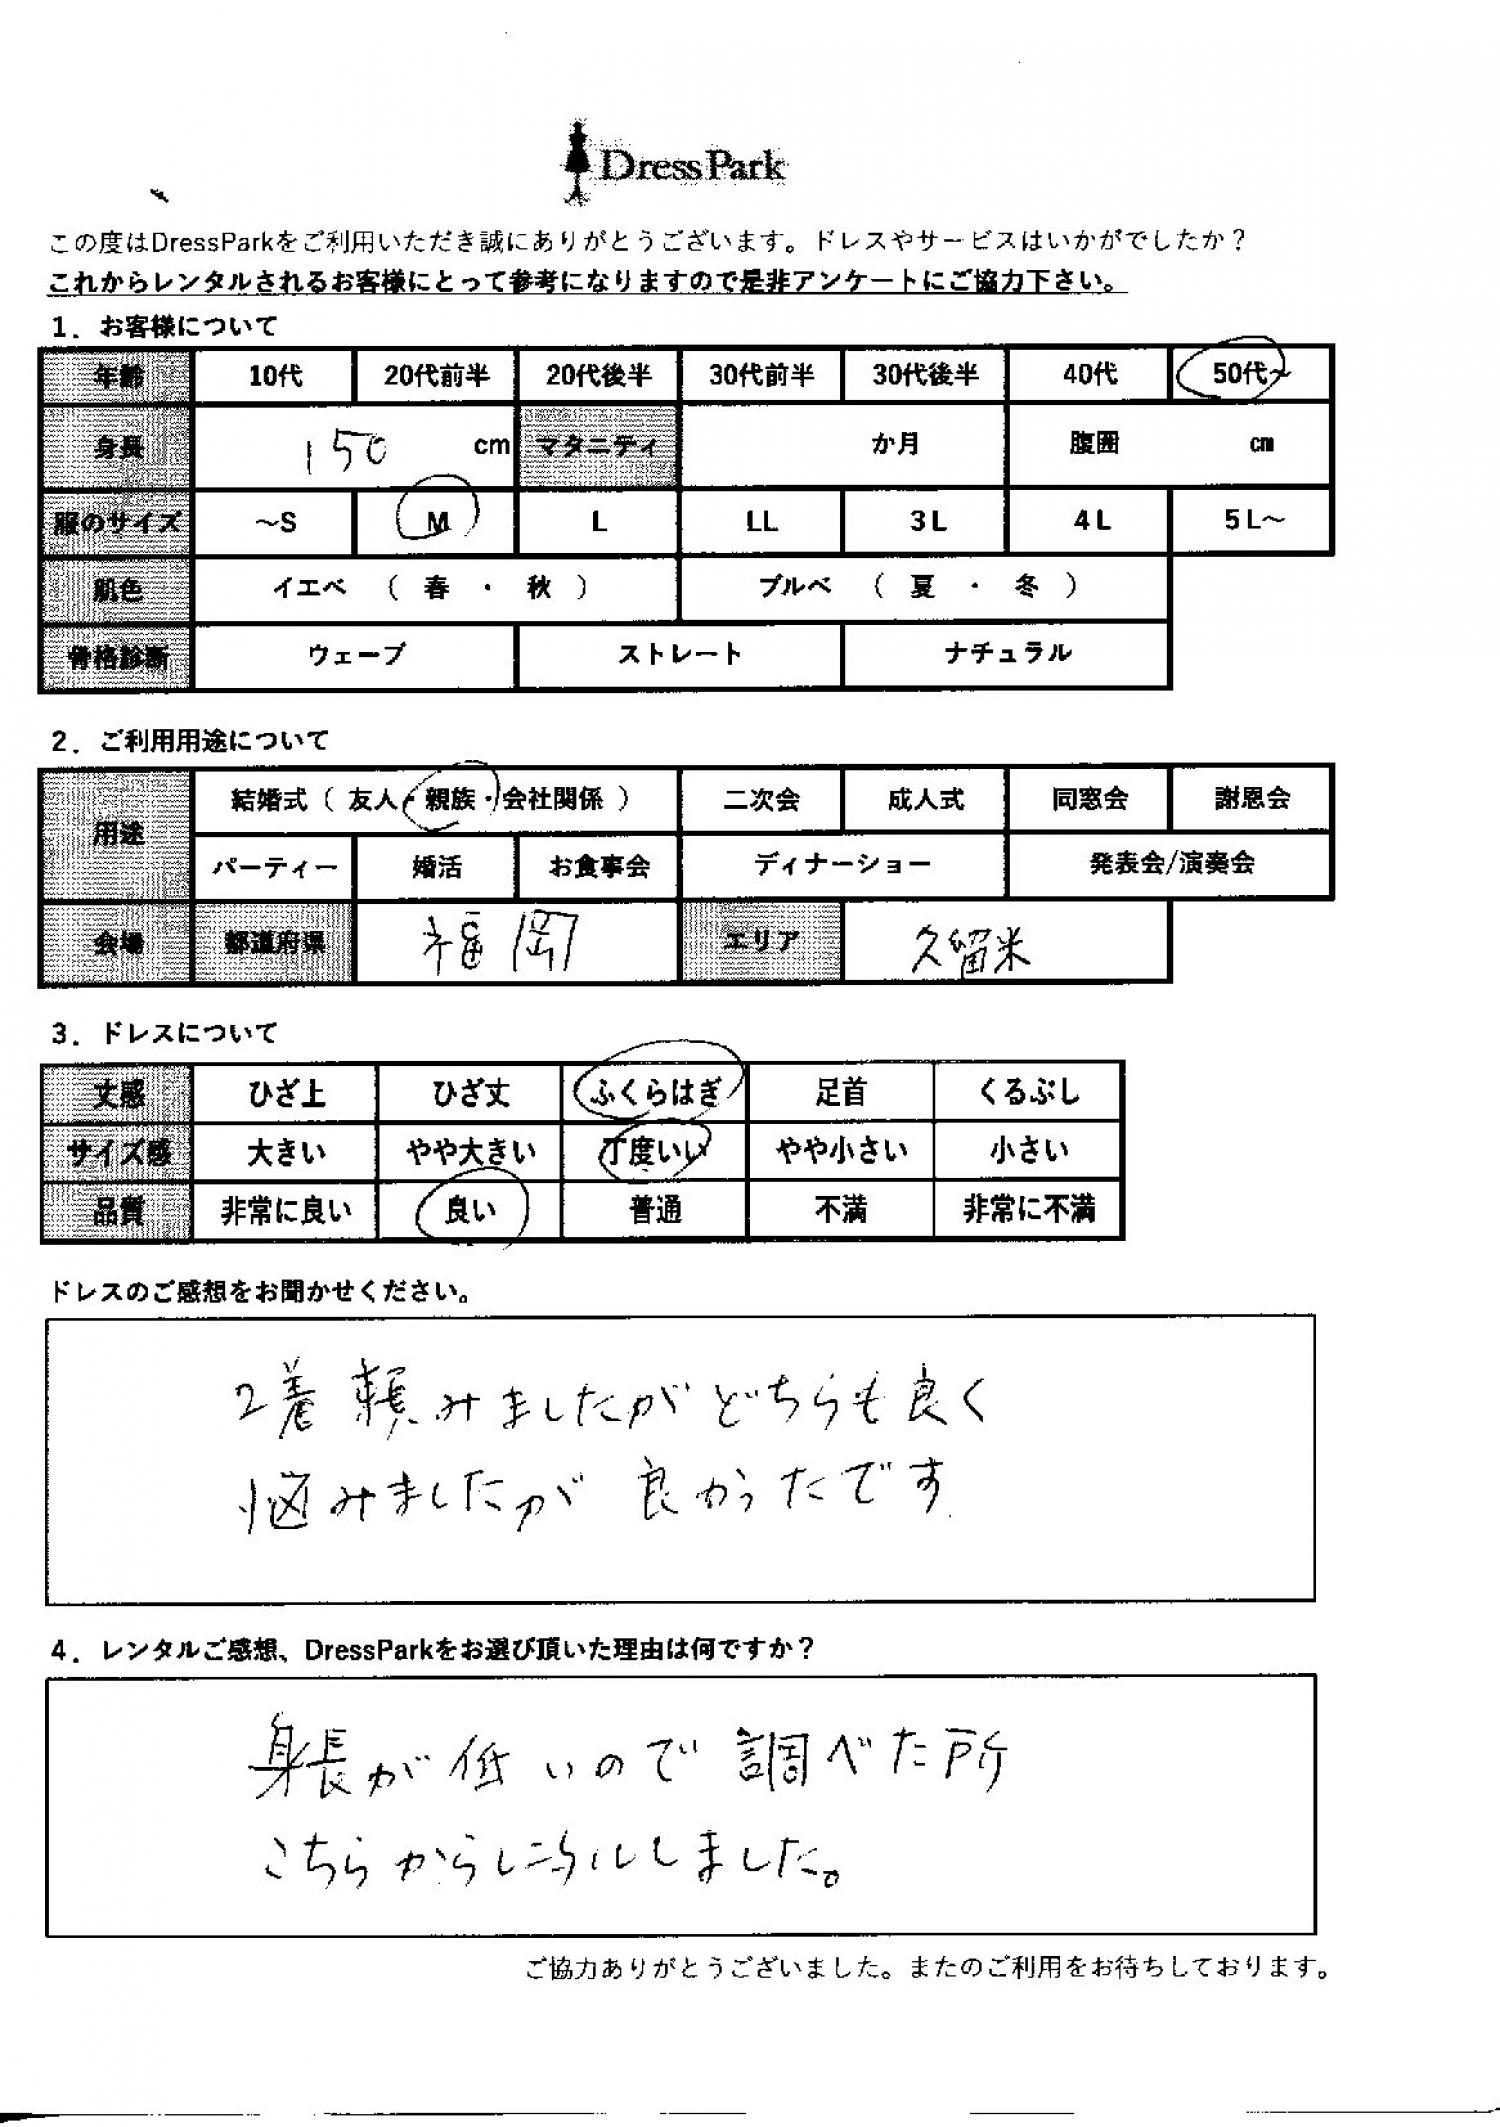 DressPark
この度はDressParkをご利用いただき誠にありがとうございます。ドレスやサービスはいかがでしたか？
これからレンタルされるお客様にとって参考になりますので是非アンケートにご協力下さい。
1．お客様について
年齢 10代 20代前半 20代後半 30代前半 30代後半 40代 50代~
身長 150 cm マタニティ か月 腹囲 cm
服のサイズ ～S M L LL 3L 4L 5L～
肌色 イエベ （ 春 ・ 秋 ） ブルベ （ 夏 ・ 冬 ）
骨格診断 ウェーブ ストレート ナチュラル
2．ご利用用途について
用途 結婚式（ 友人・親族・会社関係 ） 二次会 成人式 同窓会 謝恩会
パーティー 婚活 お食事会 ディナーショー 発表会/演奏会
会場 都道府県 福岡 エリア 久留米
3．ドレスについて
丈感 ひざ上 ひざ丈 ふくらはぎ 足首 くるぶし
サイズ感 大きい やや大きい 丁度いい やや小さい 小さい
品質 非常に良い 良い 普通 不満 非常に不満
ドレスのご感想をお聞かせください。
2着頼みましたがどちらも良く
悩みましたが 良かったです
4．レンタルご感想、DressParkをお選び頂いた理由は何ですか？
身長が低いので調べた所
こちらからﾚﾝﾀﾙしました。
ご協力ありがとうございました。またのご利用をお待ちしております。